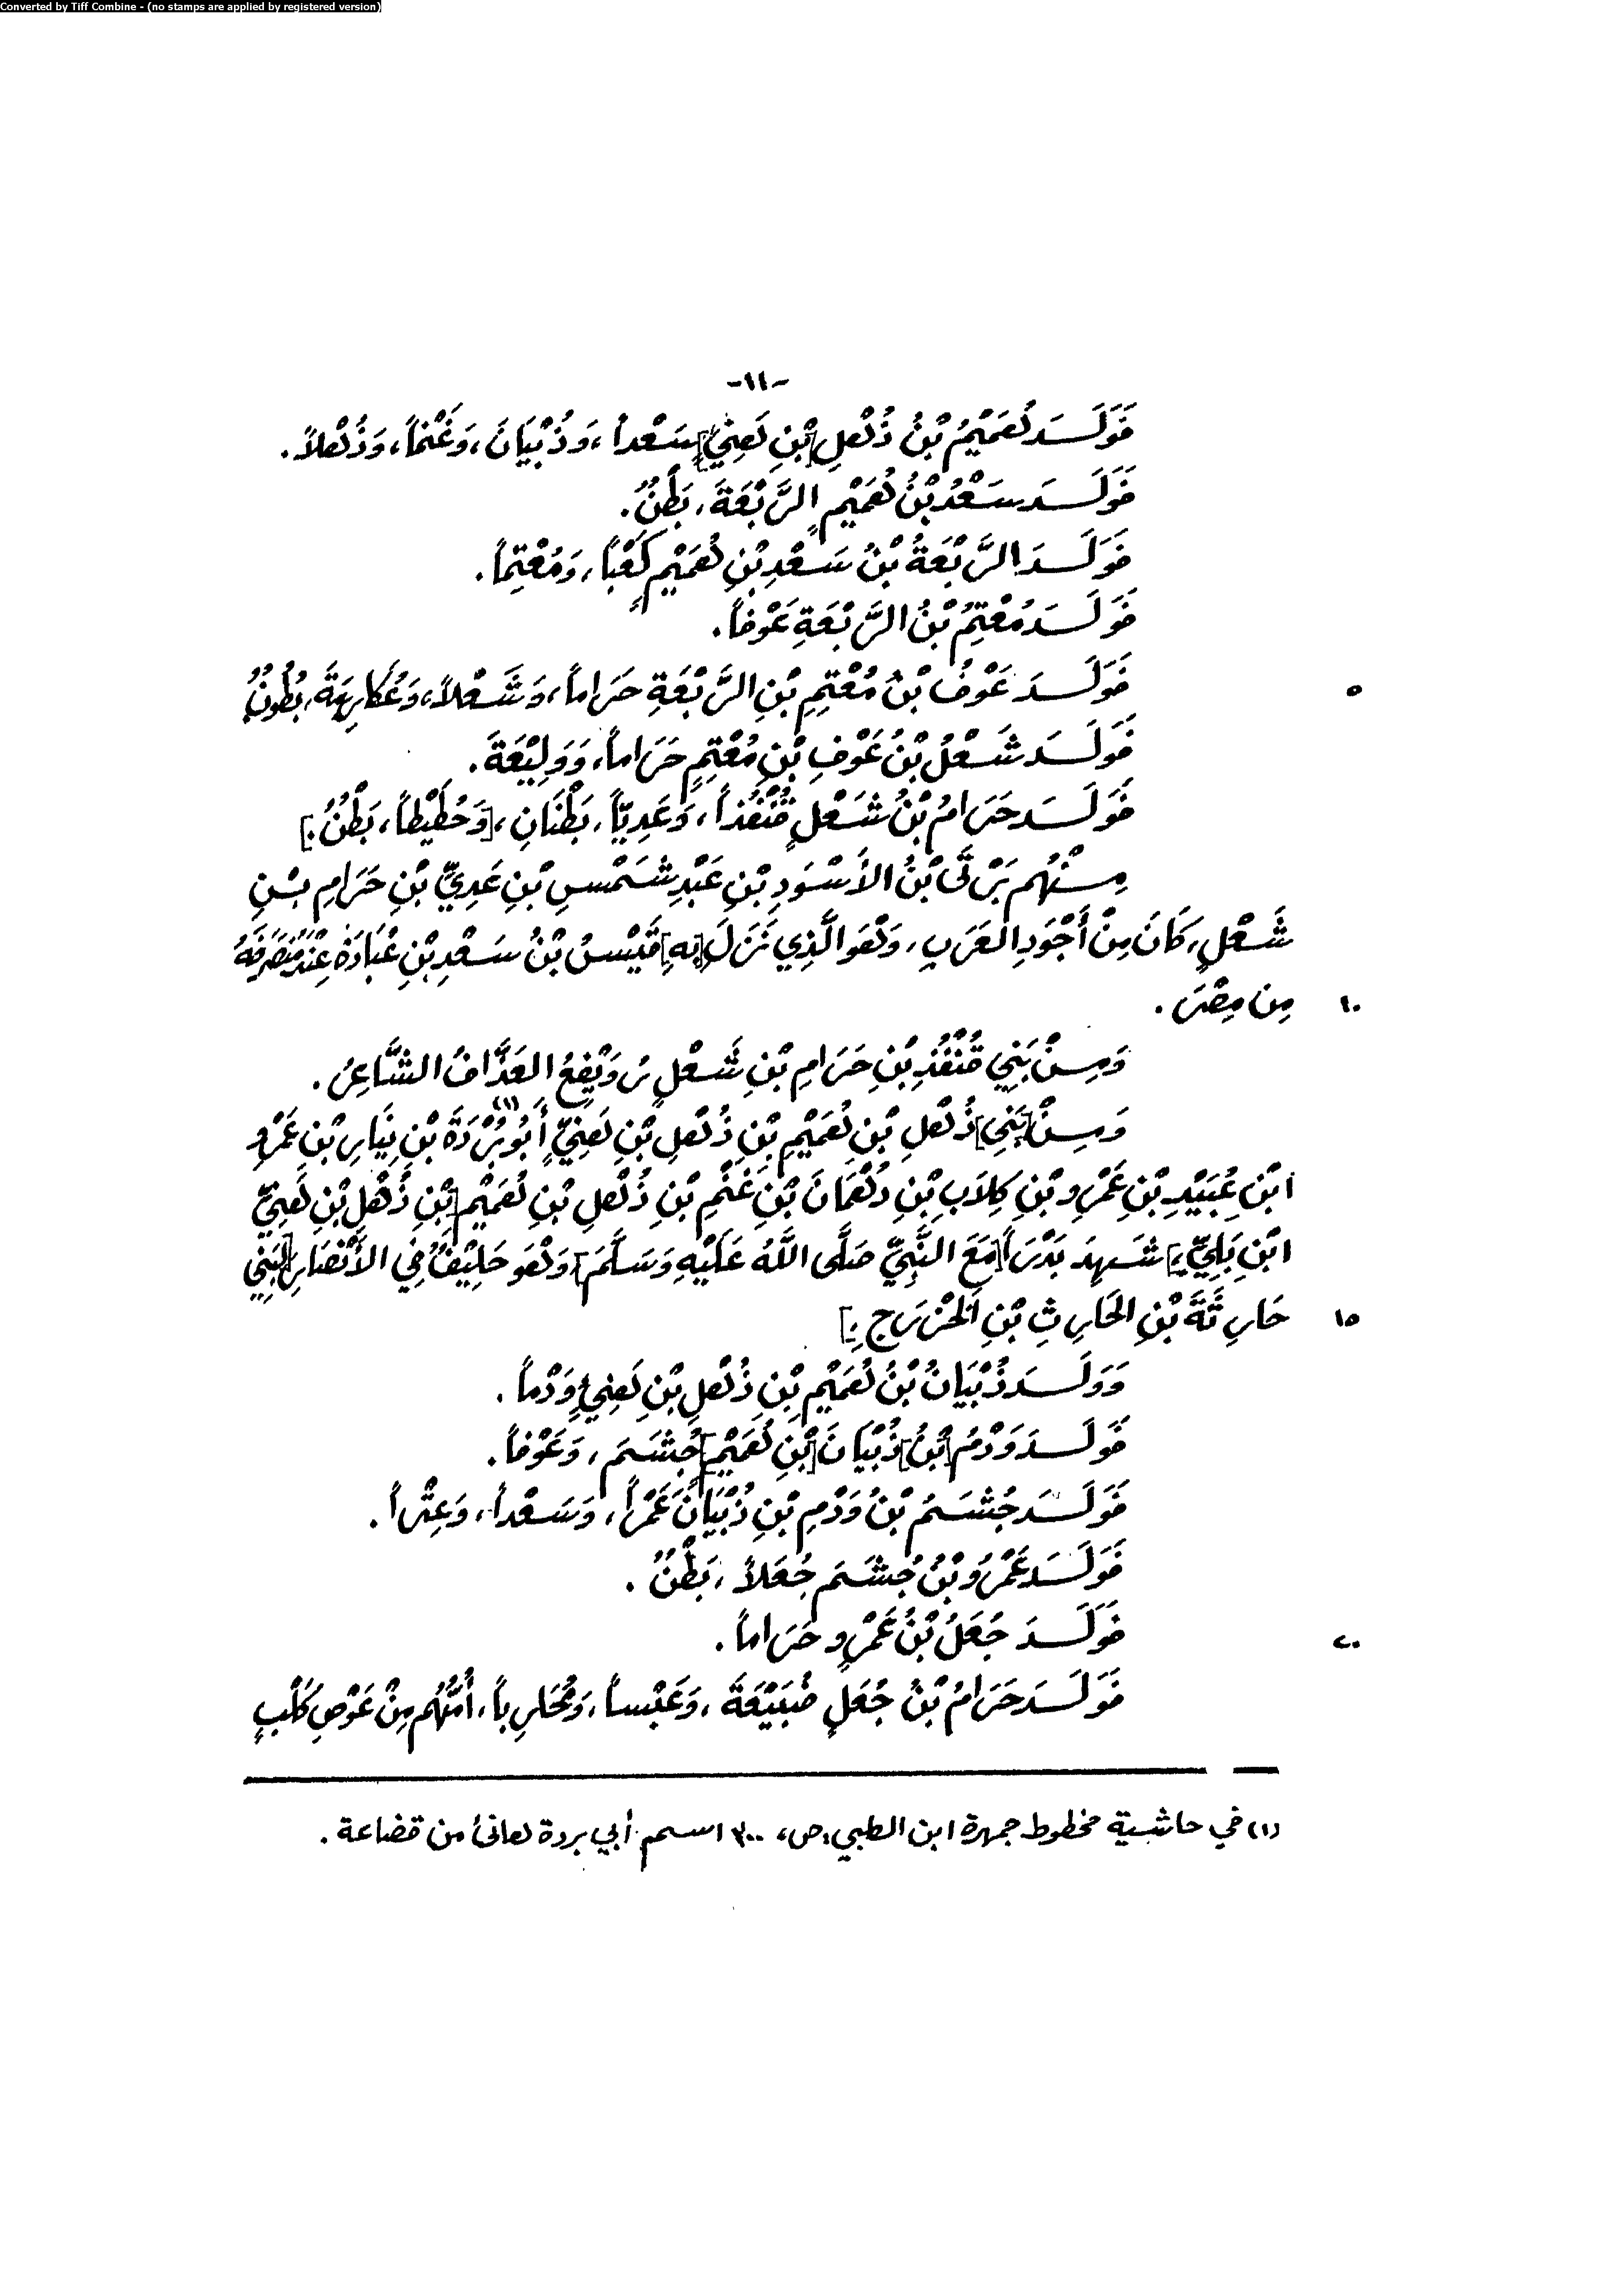 Converted by Tiff Combine - (no stamps are applied by registered version)
-١١-
فَوَلَدَ هُمَيْمُ بْنُ ذُهْلِ [بْنِ هَنِيٍّ] سَعْداً ، وَذُبْيَانَ ، وَغَنْماً ، وَذُهْلاً .
فَوَلَدَ سَعْدُ بْنُ هُمَيْمٍ الرَّبْعَةَ ، بَطْنٌ .
فَوَلَدَ الرَّبْعَةُ بْنُ سَعْدِ بْنِ هُمَيْمٍ كَعْباً ، وَمُعْتِماً .
فَوَلَدَ مُعْتِمُ بْنُ الرَّبْعَةِ عَوْفاً .
٥ فَوَلَدَ عَوْفُ بْنُ مُعْتِمِ بْنِ الرَّبْعَةِ حَرَاماً ، وَشَعْلاً ، وَعُكَارِمَةَ ، بُطُونٌ
فَوَلَدَ شَعْلُ بْنُ عَوْفِ بْنِ مُعْتِمٍ حَرَاماً ، وَوَلِيْعَةَ .
فَوَلَدَ حَرَامُ بْنُ شَعْلٍ قُنْفُذاً ، وَعَدِيّاً ، بَطْنَانِ ، [وَحُطَيْطاً ، بَطْنٌ .]
مِنْهُم بَرْلَى بْنُ الأَسْوَدِ بْنِ عَبْدِ شَمْسِ بْنِ عَدِيِّ بْنِ حَرَامِ بْنِ
شَعْلٍ ، كَانَ مِنْ أَجْوَدِ العَرَبِ ، وَهُوَ الَّذِي نَزَلَ [بِهِ] قَيْسُ بْنُ سَعْدِ بْنِ عُبَادَةَ عِنْدَ مُنْصَرَفِهِ
١٠ مِن مِصْرَ .
وَمِنْ بَنِي قُنْفُذِ بْنِ حَرَامِ بْنِ شَعْلٍ رُوَيْفِعُ العَدَّافُ الشَّاعِرُ .
وَمِنْ [بَنِي] ذُهْلِ بْنِ هُمَيْمِ بْنِ ذُهْلِ بْنِ هَنِيٍّ أَبُو بُرْدَةَ (١) بْنِ نِيَارِ بْنِ عَمْرِو
ابْنِ عُبَيْدِ بْنِ عَمْرِو بْنِ كِلاَبِ بْنِ دُهْمَانَ بْنِ غَنْمِ بْنِ ذُهْلِ بْنِ هُمَيْمِ [بْنِ ذُهْلِ بْنِ هَنِيِّ
ابْنِ بَلِيٍّ ،] شَهِدَ بَدْرَاً [مَعَ النَّبِيِّ صَلَّى اللَّهُ عَلَيْهِ وَسَلَّمَ] وَهُوَ حَلِيْفٌ فِي الأَنْصَارِ [لِبَنِي
١٥ حَارِثَةَ بْنِ الحَارِثِ بْنِ الخَزْرَجِ .]
وَوَلَدَ ذُبْيَانُ بْنُ هُمَيْمِ بْنِ ذُهْلِ بْنِ هَنِيٍّ وَدْماً .
فَوَلَدَ وَدْمُ [بْنُ] ذُبْيَانَ [بْنِ هُمَيْمٍ] جُشَمَ ، وَعَوْفاً .
فَوَلَدَ جُشَمُ بْنُ وَدْمِ بْنِ ذُبْيَانَ عَمْراً ، وَسَعْداً ، وَعِتْراً .
فَوَلَدَ عَمْرُو بْنُ جُشَمَ جُعَلاً ، بَطْنٌ .
٢٠ فَوَلَدَ جُعَلُ بْنُ عَمْرٍو حَرَاماً .
فَوَلَدَ حَرَامُ بْنُ جُعَلٍ ضُبَيْعَةَ ، وَعَبْساً ، وَمُحَارِباً ، أُمُّهُم مِنْ عَوْصِ كَلْبٍ
(١) في حاشية مخطوط جمهرة ابن الكلبي ، ص ، ٣٠٠ اسم أبي بردة هانئ من قضاعة .